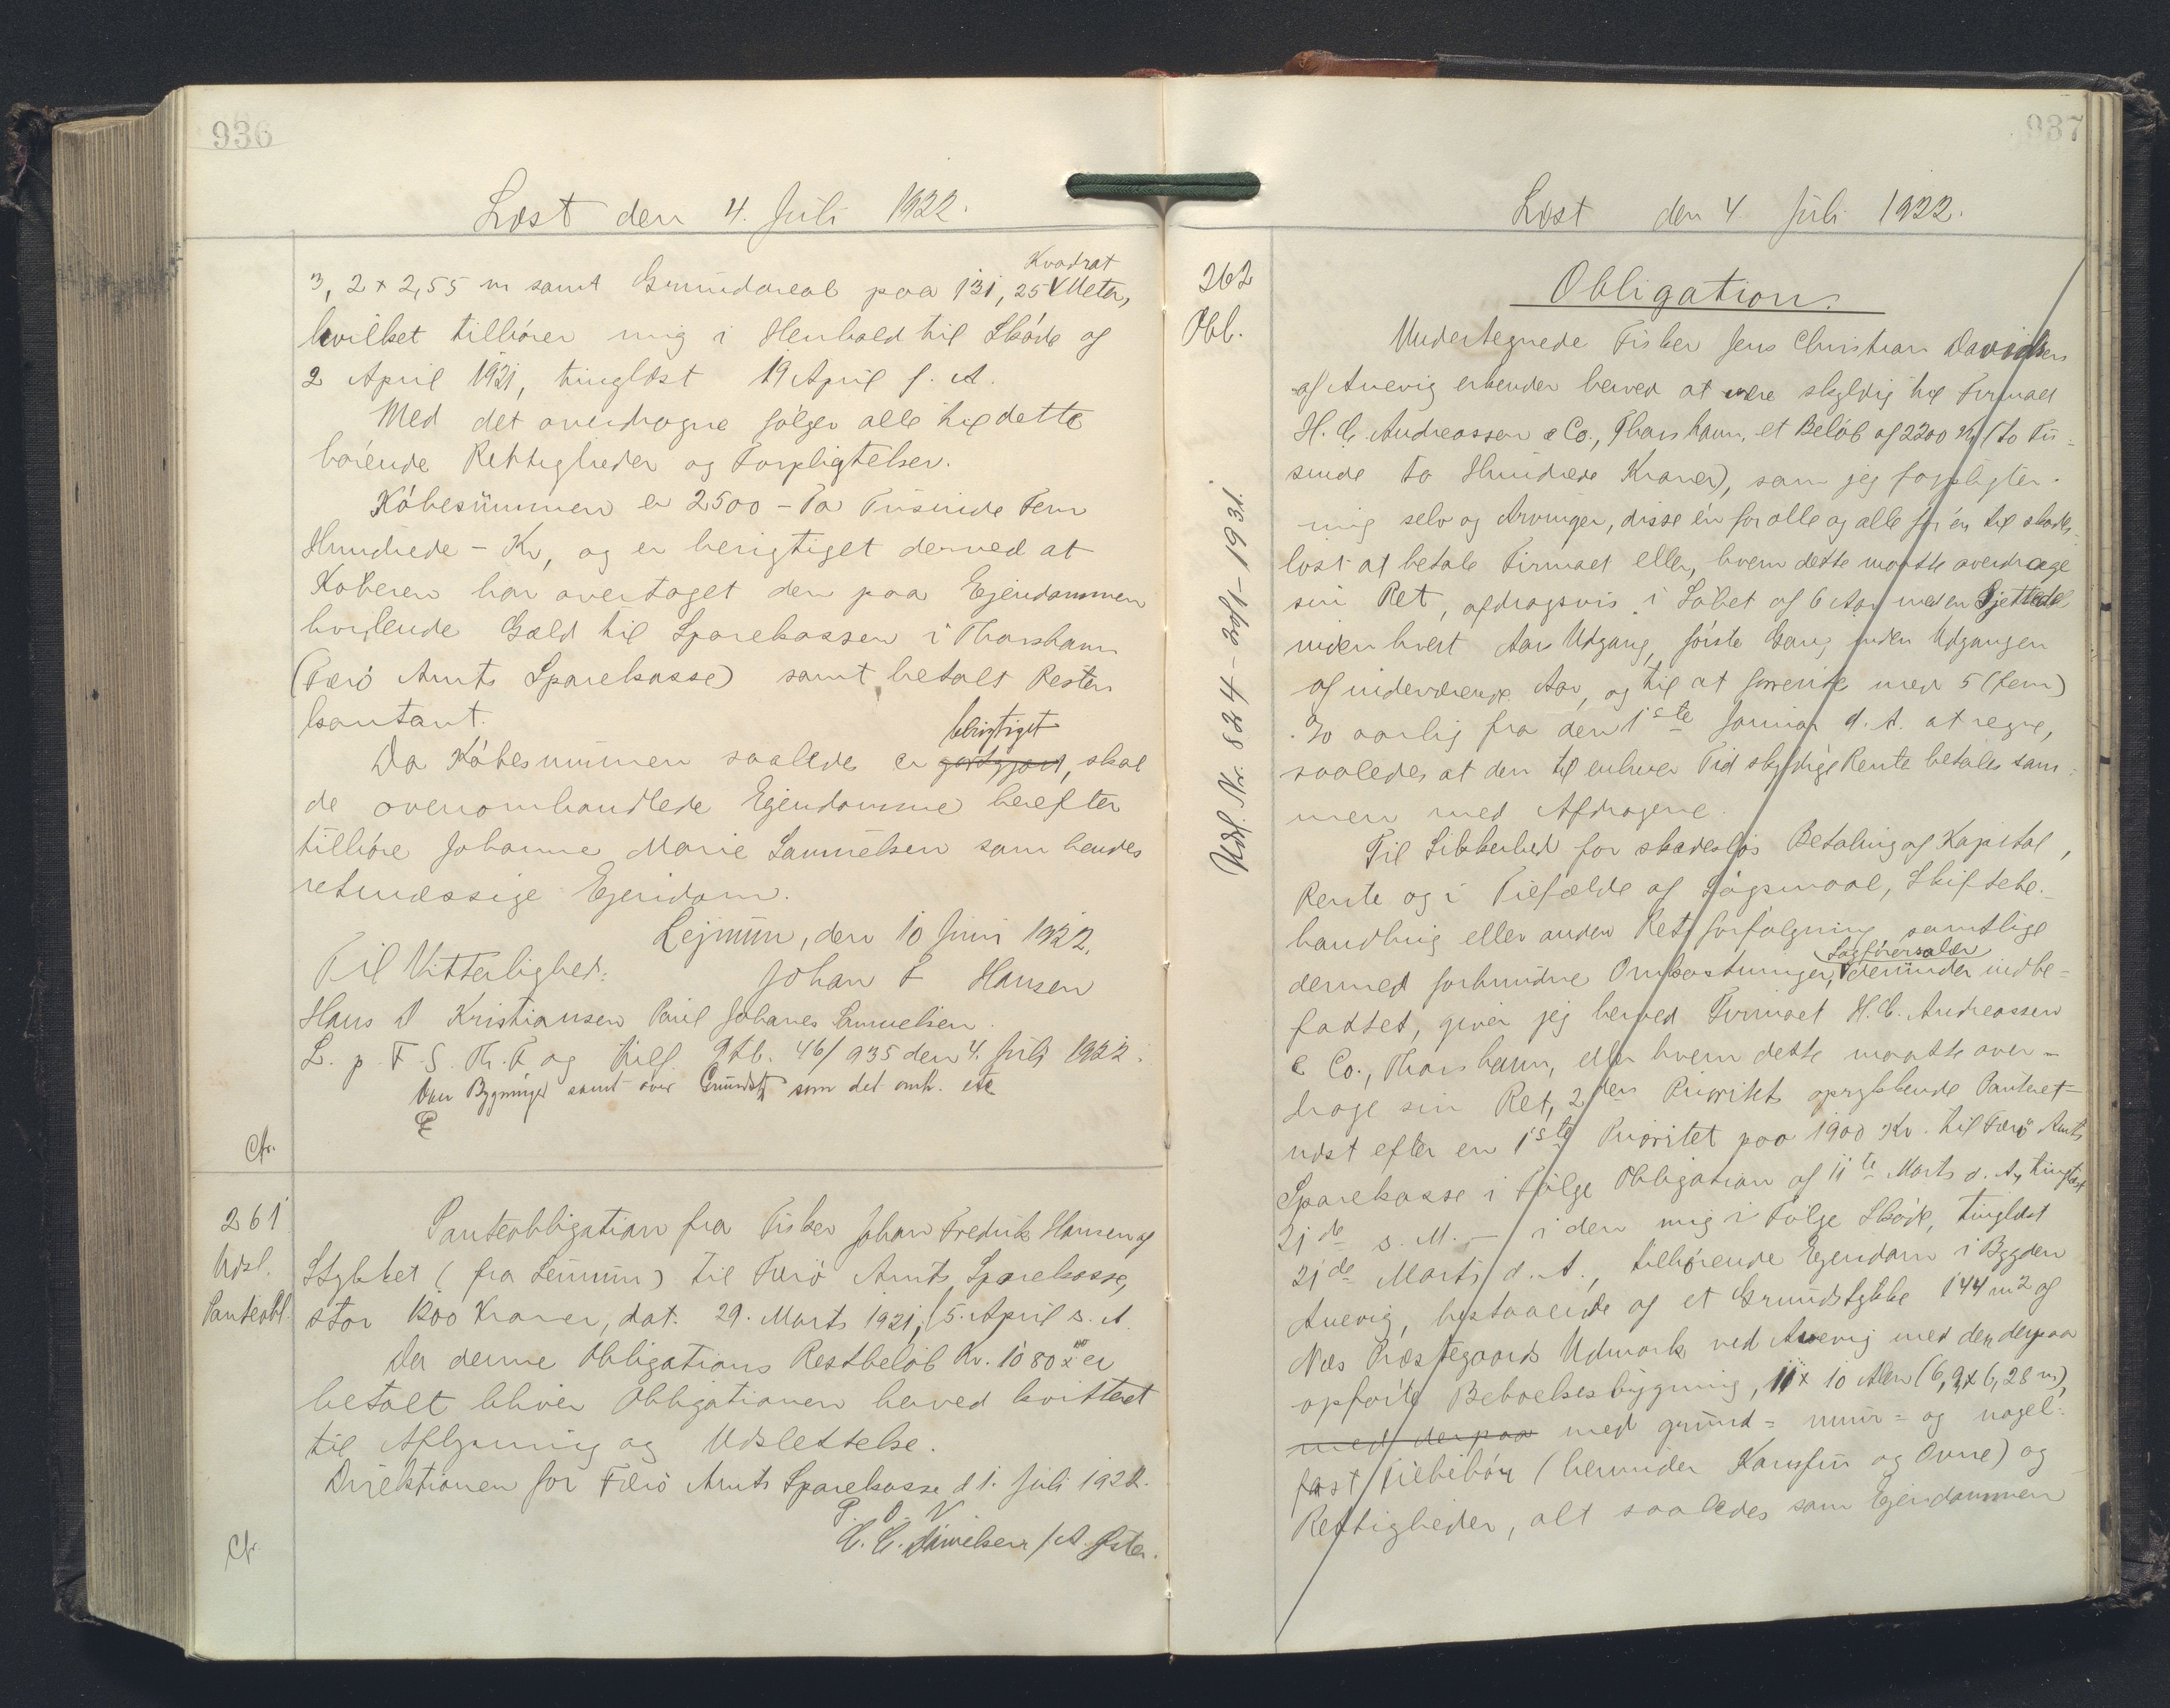 936
Læst den 4. Juli 1922.
3,2 x 2,55 m samt Grundareal paa 131,25 Kvadrat Meter,
hvilket tilhører mig i Henhold til Skøde og
2 April 1921, tinglæst 19 April s. A.
Med det overdragne følger alle til dette
hørende Rettigheder og Forpligtelser.
Købesummen er 2500 - To Tusinde Fem
Hundrede - Kr, og er berigtiget derved at
Køberen har overtaget den paa Ejendommen
hvilende Gæld til Sparekassen i Thorshavn
(Færø Amts Sparekasse) samt betalt Resten
kontant.
Da Købesummen saaledes er godtgjort, berigtiget skal
de ovenomhandlede Ejendomme herefter
tilhøre Johanne Marie Samuelsen som hendes
retmæssige Ejendom.
Lejnum, den 10 Juni 1922.
Til Vitterlighed: Johan F Hansen
Hans D Kristiansen Poul Johanes Samuelsen
L. p. F. S. Th. F og Gtb. 46/935 den 4. Juli 1922.
Over Bygninger samt over Grundst som det omh. etc
Cfr.
261
Udsl.
Panteobl.
Panteobligation fra Fisker Johan Fredrik Hansen af
Stykket (fra Leinum) til Færø Amts Sparekasse,
stor 1200 Kroner, dat. 29. Marts 1921, 5. April s. A.
Da denne Obligations Restbeløb Kr. 1080 er
betalt bliver Obligationen herved kvitteret
til Aflysning og Udslettelse.
Direktionen for Færø Amts Sparekasse d 1. Juli 1922.
P. D. V
C. C. Danielsen / A.
Cfr.
937
Læst den 4. Juli 1922.
262
Obl.
Udsl. Nr. 824 - 20/1 - 1931.
Obligation.
Undertegnede Fisker Jens Christian Davidsen
af Anevig erkender herved at være skyldig til Firmaet
H. C. Andreassen & Co., Thorshavn, et Beløb af 2200 Kr (to Tu-
sinde to Hundrede Kroner), som jeg forpligter
mig selv og Arvinger, disse én for alle og alle for én til skades-
løst at betale Firmaet eller, hvem dette maatte overdrage
sin Ret, afdragsvis i Løbet af 6 Aar med en Sjettedel
inden hvert Aars Udgang, første Gang inden Udgangen
af indeværende Aar, og til at forrente med 5 (fem)
% aarlig fra den 1ste Januar d. A. at regne,
saaledes at den til enhver Tid skyldige Rente betales sam-
men med Afdragene.
Til Sikkerhed for skadesløs Betaling af Kapital,
Rente og i Tilfælde af Søgsmaal, Skiftebe-
handling eller anden Retsforfølgning samtlige
dermed forbundne Omkostninger, Sagførersalær derunder indbe-
fattet, giver jeg herved Firmaet H. C. Andreassen
& Co., Thorshavn, eller hvem dette maatte over-
drage sin Ret, 2den Prioritets oprykkende Panteret
næst efter en 1ste Prioritet paa 1900 Kr. til Færø Amts
Sparekasse i Følge Obligation af 11te Marts d. A., tinglæst
21de s. M. - i den mig i Følge Skøde, tinglæst
21de Marts d. A., tilhørende Ejendom i Bygden
Anevig, bestaaende af et Grundstykke 144 m2 og
Næs Præstegaards Udmark ved Anevig med den derpaa
opførte Beboelsesbygning, 11 x 10 Alen (6,9 x 6,28 m),
med derpaa med grund- muur- og nagel-
fast Tilbehør (herunder Komfur og Ovne) og
Rettigheder, alt saaledes som Ejendommen